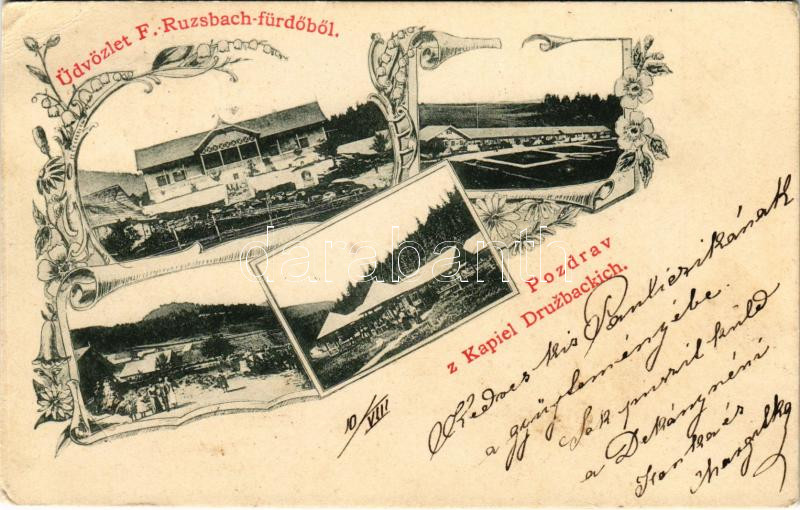 Üdvözlet F.-Ruzsbach-fürdőből.
Pozdrav
z Kapiel Družbackich.
10/VIII
Kedves kis Pauliczikának
a gyüjteményébe.
Sok puszit küld
a Dekány néni
Ilonka és
Margitka
darabanth